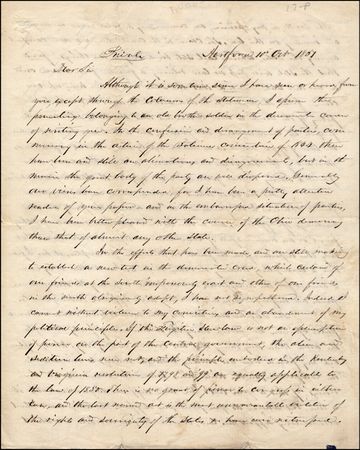 Private Hartford 10th Oct 1851
Dear Sir
Although it is some time since I have seen or heard from
you except through the Columns of the Statesman I open this
belonging to an old brother soldier in the democratic cause
of writing you. In the confusion and derangement of parties, com
mencing in the action of the Baltimore convention of 1844 there
have been and still are alienations and disagreements, but in the
main the great body of the party are well disposed. Generally
our views have corresponded, for I have been a pretty attentive
reader of your paper and in the unhappy of parties,
I have been better pleased with the course of the Ohio democracy
than that of almost any other State.
In the efforts that has been made and are still making
to establish a new test in the democratic creed, which certain of
our friends at the South imperiously exact and others of our friends
in the north obligingly adopt, I have no sympathies. Indeed I
cannot without violence to my convictions and an abandonment of my
political principles. If the fugitive slave law is not an assumption
of power on the part of the Central government, the alien and
sedition laws were not, and the principles embodied in the Kentucky
and Virginia resolutions of 1798 and 99 are equally applicable to
the law of 1850. There is no grant of power to Congress in either
case, and the last named act is the most unwarrantable violation of
the rights and sovereignty of the States we have ever